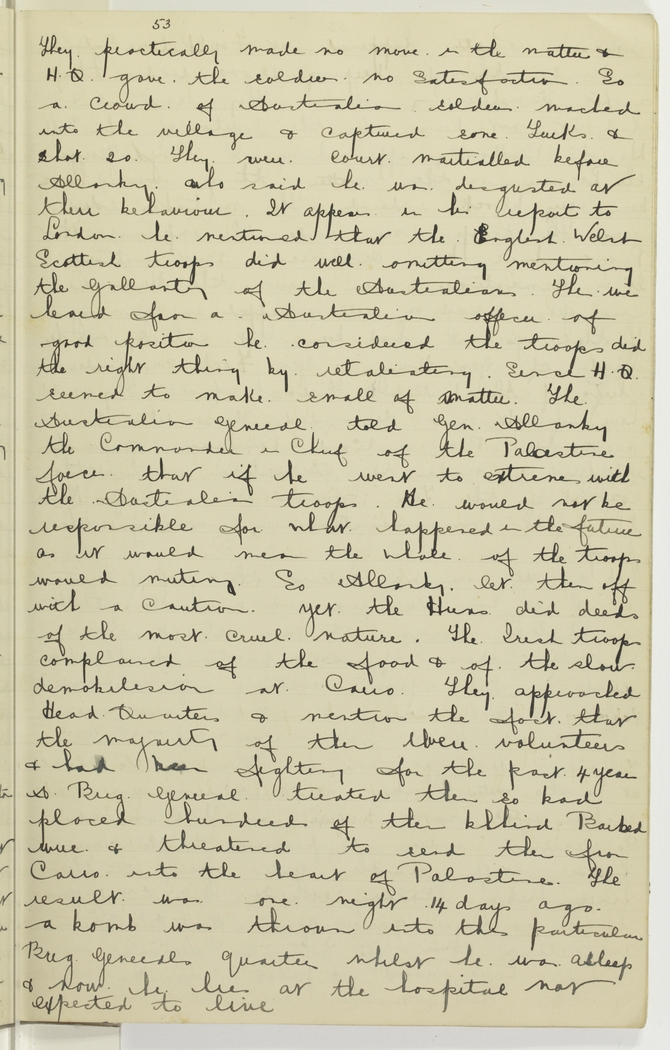 53
They practically made no move in the matter &
H.Q. gave the soldiers no satisfaction. So
a crowd of Australian soldiers marched
into the village & captured some Turks &
shot 20. They were court martialled before
Allanby. who said he was disgusted at
their behaviour. It appears in his report to
London he mentioned that the English Welsh
Scottish troops did well omitting mentioning
the gallantry of the Australians. The we
heard from a Australian officer of
good position he considered the troops did
the right thing by retaliating. Since H.Q.
seemed to make small of matter. The
Australian General told Gen. Allanby
the Commander in Chief of the Palastine
force that if he went to extremes with
the Australian troops. He would not be
responsible for what happened in the future
as it would mean the whole of the troops
would mutiny. So Allanby. let them off
with a caution. yet the Huns did deeds
of the most cruel nature. The Irish troops
complained of the food & of the slow
demobilesion at Cairo. They approached
Head Quarters & mention the fact that
the majority of them were volunteers
& had been fighting for the past 4 years
A Brig. General treated them so bad
placed hundreds of them behind Barbed
wire & threatened to send them from
Cairo into the heart of Palastine. The
result was one night 14 days ago.
a bomb was thrown into this particular
Brig Generals quarters whilst he was asleep
& now he lies at the hospital not
expected to live